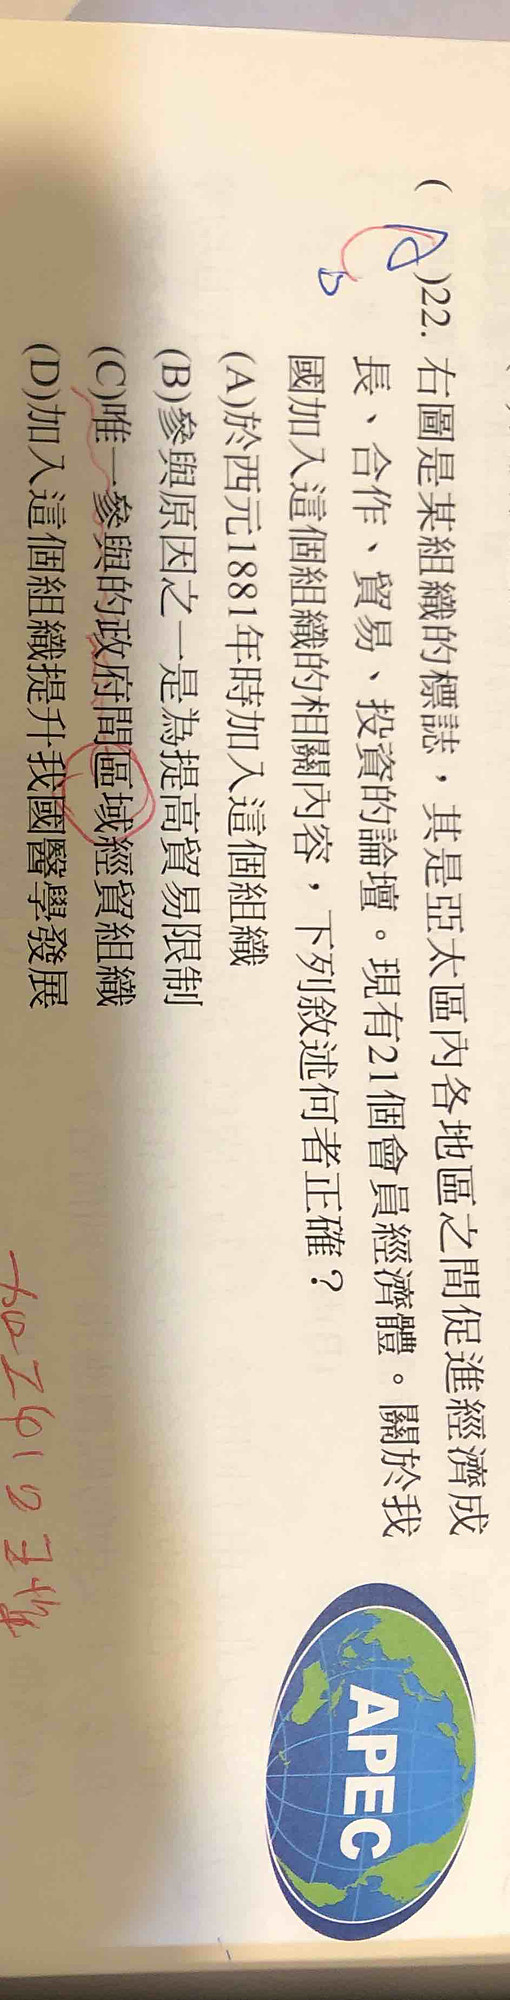 (A)22. 右圖是某組織的標誌，其是亞太區內各地區之間促進經濟成
長、合作、貿易、投資的論壇。現有21個會員經濟體。關於我
國加入這個組織的相關內容，下列敘述何者正確？
(A)於西元1881年時加入這個組織
(B)參與原因之一是為提高貿易限制
(C)唯一參與的政府間區域經貿組織
(D)加入這個組織提升我國醫學發展
APEC